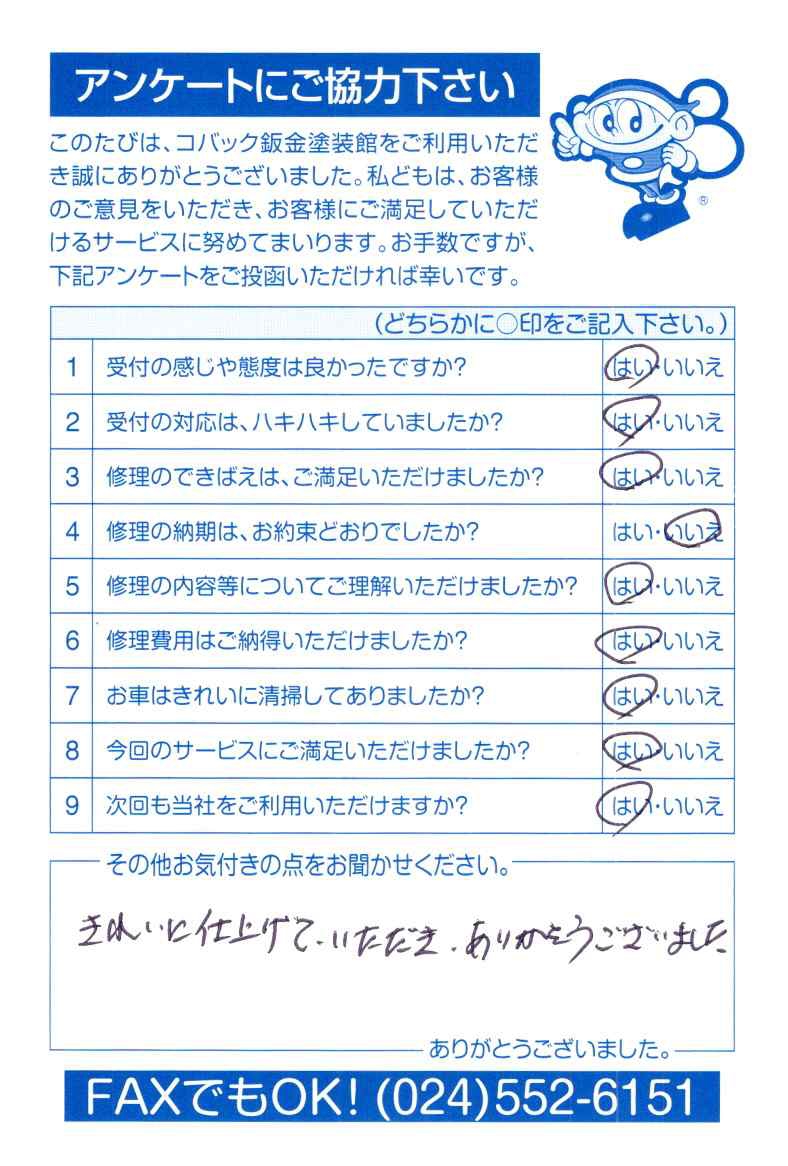 アンケートにご協力下さい
このたびは、コバック鈑金塗装館をご利用いただ
き誠にありがとうございました。私どもは、お客様
のご意見をいただき、お客様にご満足していただ
けるサービスに努めてまいります。お手数ですが、
下記アンケートをご投函いただければ幸いです。
®
(どちらかに○印をご記入下さい。)
1 受付の感じや態度は良かったですか? はい・いいえ
2 受付の対応は、ハキハキしていましたか? はい・いいえ
3 修理のできばえは、ご満足いただけましたか? はい・いいえ
4 修理の納期は、お約束どおりでしたか? はい・いいえ
5 修理の内容等についてご理解いただけましたか? はい・いいえ
6 修理費用はご納得いただけましたか? はい・いいえ
7 お車はきれいに清掃してありましたか? はい・いいえ
8 今回のサービスにご満足いただけましたか? はい・いいえ
9 次回も当社をご利用いただけますか? はい・いいえ
その他お気付きの点をお聞かせください。
きれいに仕上げて、いただき、ありがとうございました
ありがとうございました。
FAXでもOK! (024)552-6151